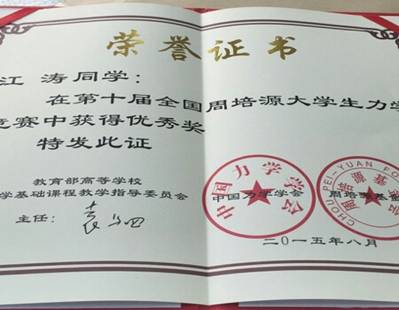 荣誉证书
江涛同学：
在第十届全国周培源大学生力学
竞赛中获得优秀奖
特发此证
教育部高等学校
学基础课程教学指导委员会
主任：
中国力学学会
周培源基金
中国力学学会
CHOU PEI-YUAN FO
二〇一五年八月